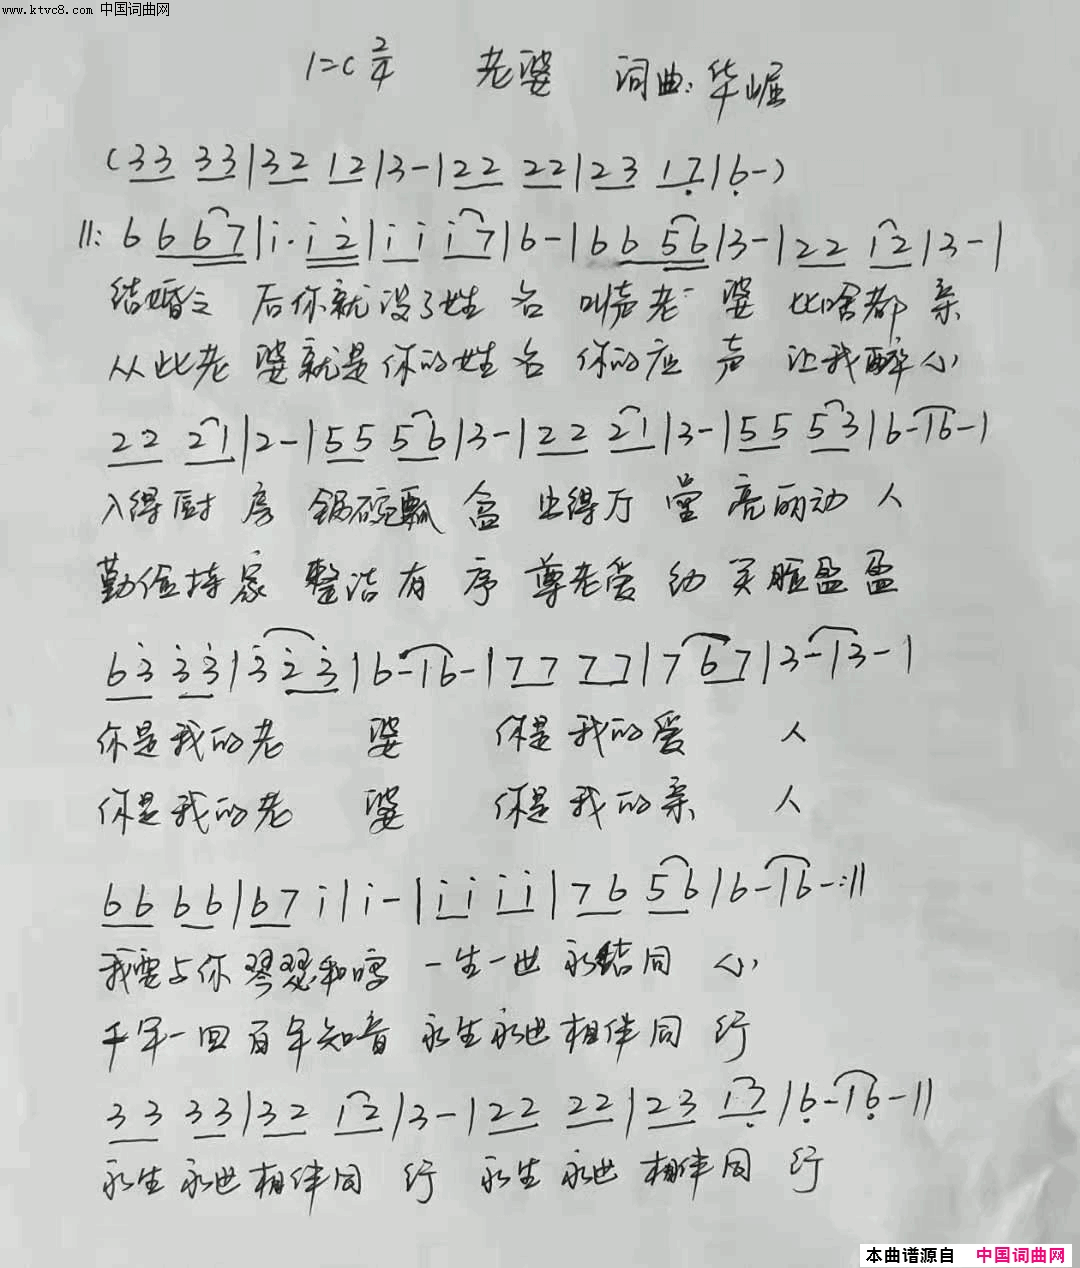 www.ktvc8.com 中国词曲网
1=C 2/4 老婆 词曲:华崛
(33 33|32 12|3-|22 22|23 17|6-)
||:6 6 67|i·i 2|i i i7|6-|6 6 56|3-|22 12|3-|
结婚之 后你就没了姓 名 叫声老 婆 比啥都 亲
从此老 婆就是你的姓 名 你的应 声 让我醉心
22 21|2-|55 56|3-|22 21|3-|55 53|6-|6-|
入得厨 房 锅碗瓢 盆 出得厅 堂 亮丽动 人
勤俭持 家 整洁有 序 尊老爱 幼 笑脸盈 盈
63 33|3 23|6-|6-|77 77|7 67|3-|3-|
你是我的老 婆 你是我的爱 人
你是我的老 婆 你是我的亲 人
66 66|67 i|i-|ii ii|76 56|6-|6-:||
我要与你琴瑟和鸣 一生一世永结同 心
千年一回百年知音 永生永世相伴同 行
33 33|32 12|3-|22 22|23 17|6-|6-||
永生永世相伴同 行 永生永世 相伴同 行
本曲谱源自 中国词曲网